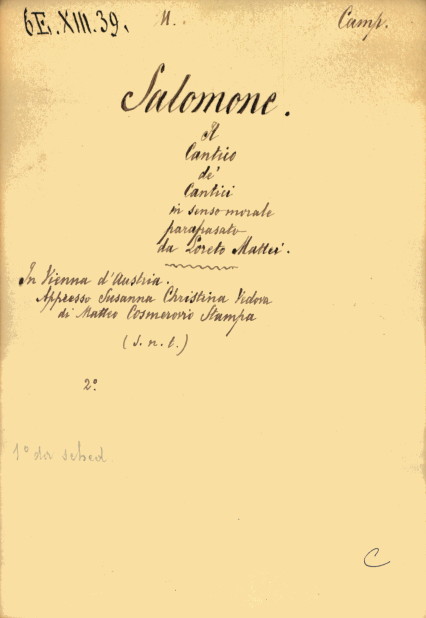 6E.XIII.39. N. Camp.
Salomone.
Il
Cantico
de'
Cantici
in senso morale
parafrasato
da Loreto Mattei.
In Vienna d'Austria.
Appresso Susanna Christina Vedova
di Matteo Cosmerovio Stampa
(s. n. t.)
2º
1º da sched.
C